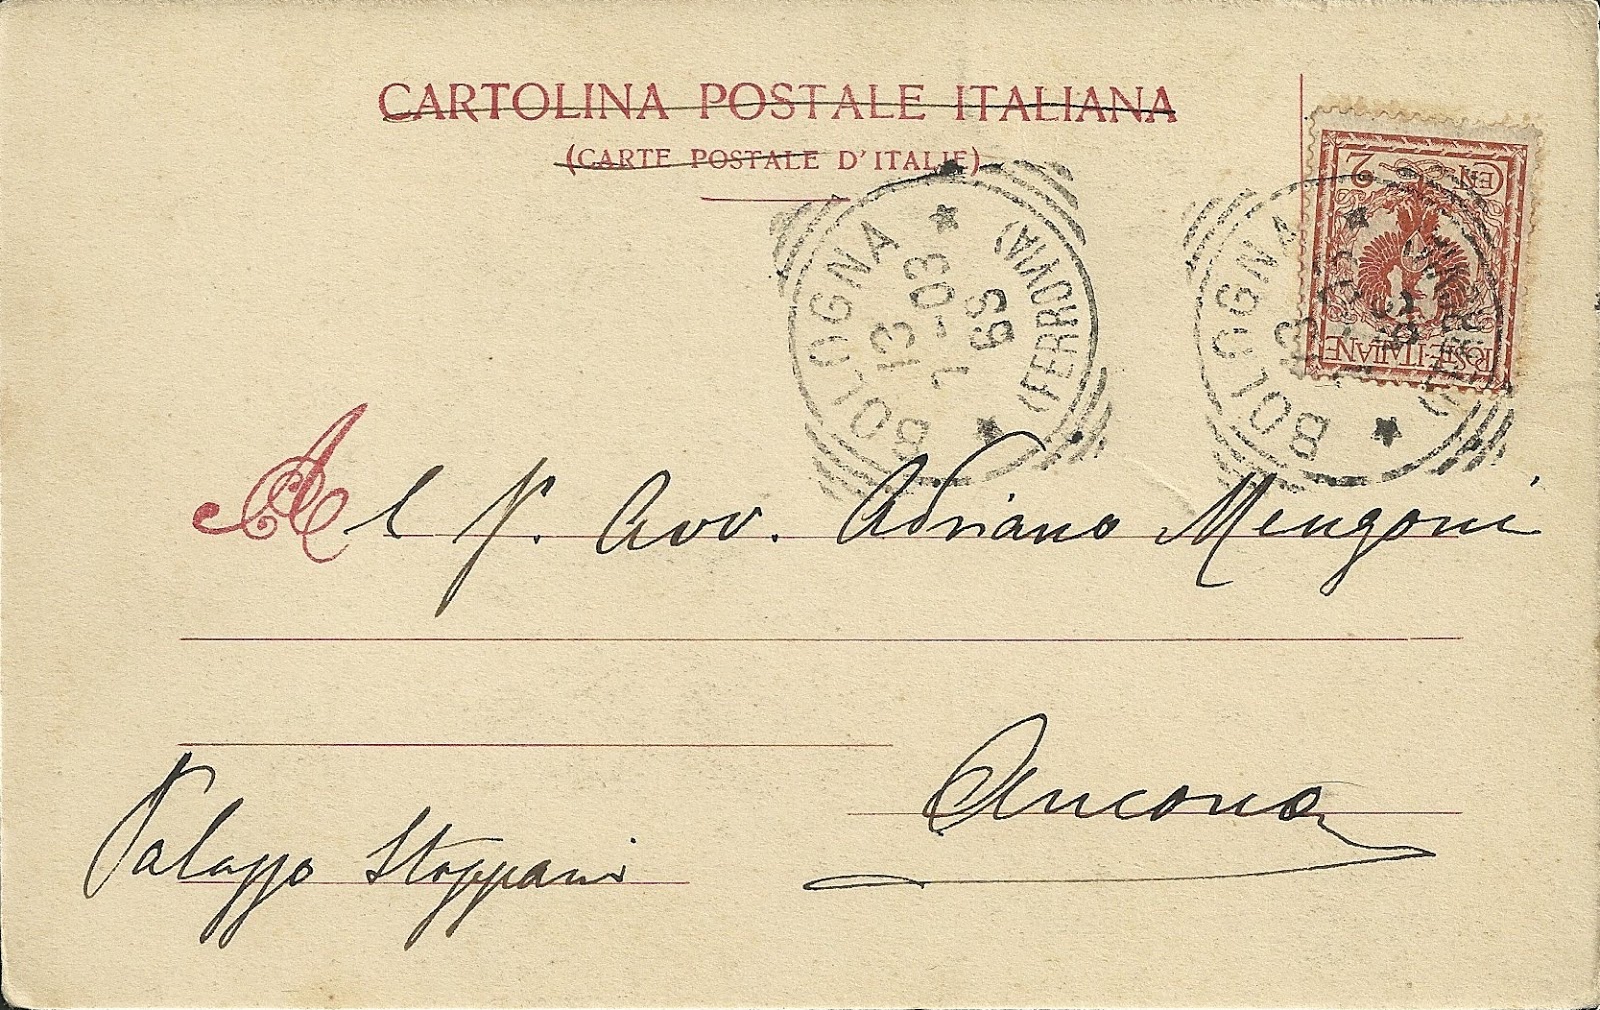 CARTOLINA POSTALE ITALIANA
(CARTE POSTALE D'ITALIE)
CEN. 2
POSTE-ITALIANE
BOLOGNA
(FERROVIA)
13
7-03
BOLOGNA
13
Al S. Avv. Adriano Mengoni
Ancona
Palazzo Stoppani